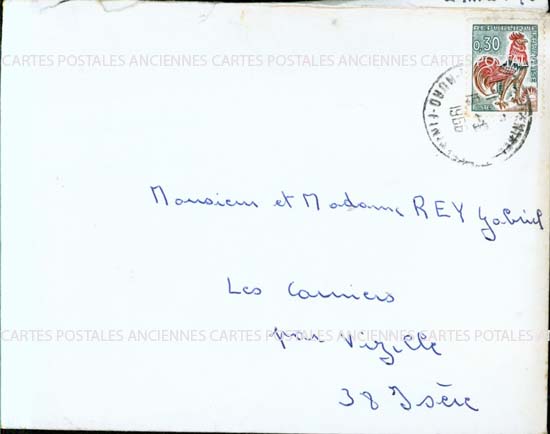 REPUBLIQUE FRANÇAISE
0,30
POSTES
1966
CARTES POSTALES ANCIENNES CARTES POSTALES ANCIENNES CARTES POSTALES
Monsieur et Madame REY Gabriel
Les Carriers
CARTES POSTALES ANCIENNES CARTES POSTALES ANCIENNES CARTES POSTALES
par Vizille
38 Isère